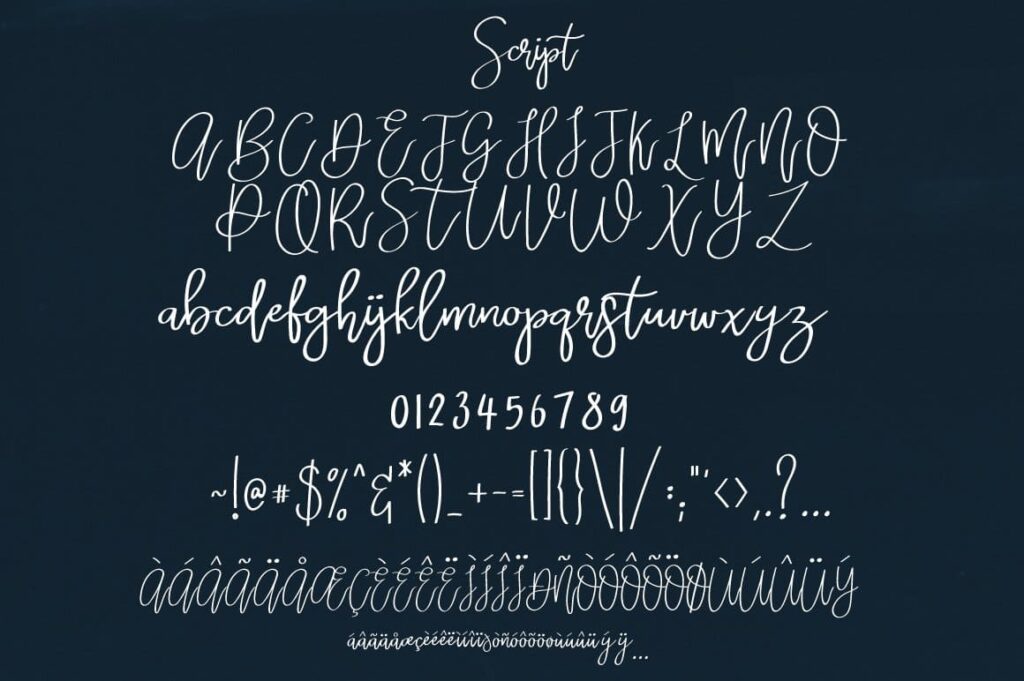 Script
A B C D E F G H I J K L M N O
P Q R S T U V W X Y Z
abcdefghijklmnopqrstuvwxyz
0123456789
~!@#$%^&*()_+-=[]{}\|/:;"'<>,.?...
ÀÁÂÃÄÅÆÇÈÉÊËÌÍÎÏÐÑÒÓÔÕÖØÙÚÛÜÝ
áâãäåæçèéêëìíîïðòñóôõöøùúûüýÿ...